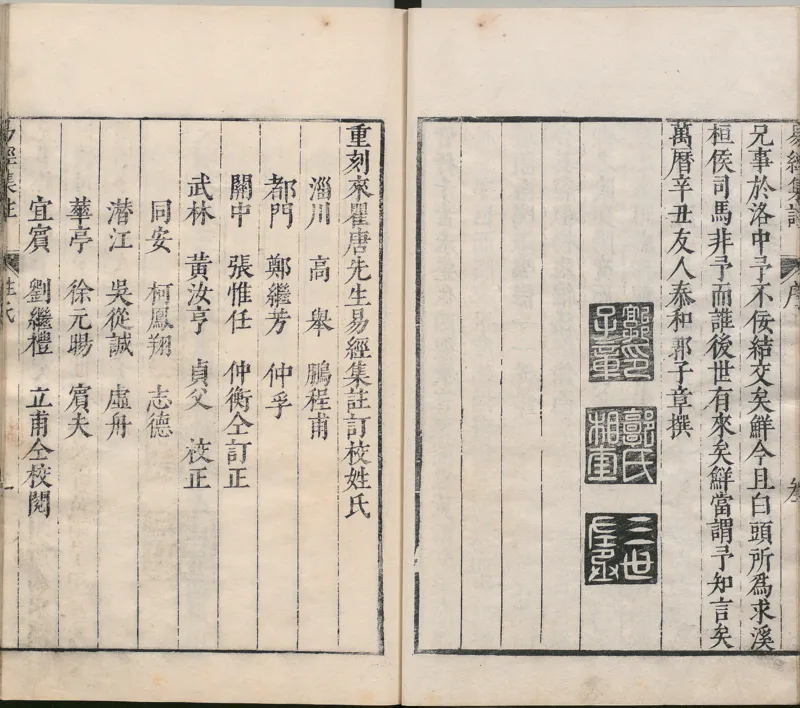 兄事於洛中予不佞結交矣鮮今且白頭所為求溪
桓侯司馬非予而誰後世有來矣鮮當謂予知言矣
萬曆辛丑友人泰和郭子章撰
郭氏
相奎
三世
重刻來瞿唐先生易經集註訂校姓氏
淄川 高舉 鵬程甫
都門 鄭繼芳 仲孚
關中 張惟任 仲衡仝訂正
武林 黃汝亨 貞父 校正
同安 柯鳳翔 志德
潛江 吳從誠 虛舟
華亭 徐元暘 賓夫
宜賓 劉繼禮 立甫仝校閱
易經集註 姓氏 一